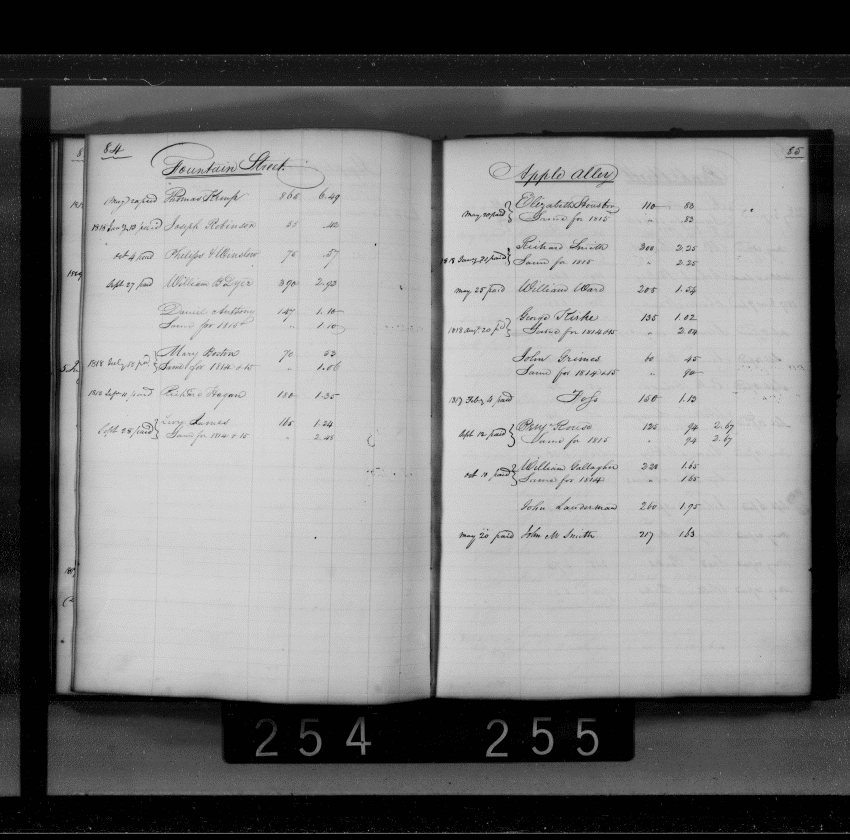 84
Fountain Street
May 20 paid Thomas Kemp 865 6.49
1818 Jany 10 paid Joseph Robinson 55 .42
Oct 4 paid Phelps & Winslow 75 .57
Sept 27 paid William B Dyer 390 2.93
Daniel Anthony 147 1.10
Same for 1815 " 1.10
Mary Boston 70 53
1818 July 18 paid Same for 1814 & 15 " 1.06
1818 Sept 11 paid Richard Hogan 180 1.35
Levy James 165 1.24
Sept 28 paid Same for 1814 & 15 " 2.48
85
Apple Alley
Elizabeth Houston 110 83
May 20 paid Same for 1815 " .83
Richard Smith 300 2.25
1818 Jany 21 paid Same for 1815 " 2.25
May 25 paid William Ward 205 1.54
George Kirke 135 1.02
1818 Augt 20 pd Same for 1814 & 15 " 2.04
John Grimes 60 45
Same for 1814 & 15 " 90
1817 Feby 4 paid Foss 150 1.13
Rouse 125 94 2.67
Sept 12 paid Same for 1815 " 94 2.67
William Gallagher 220 1.65
Oct 10 paid Same for 1814 " 1.65
John Lauderman 260 1.95
May 20 paid John M Smith 217 1.63
254 255